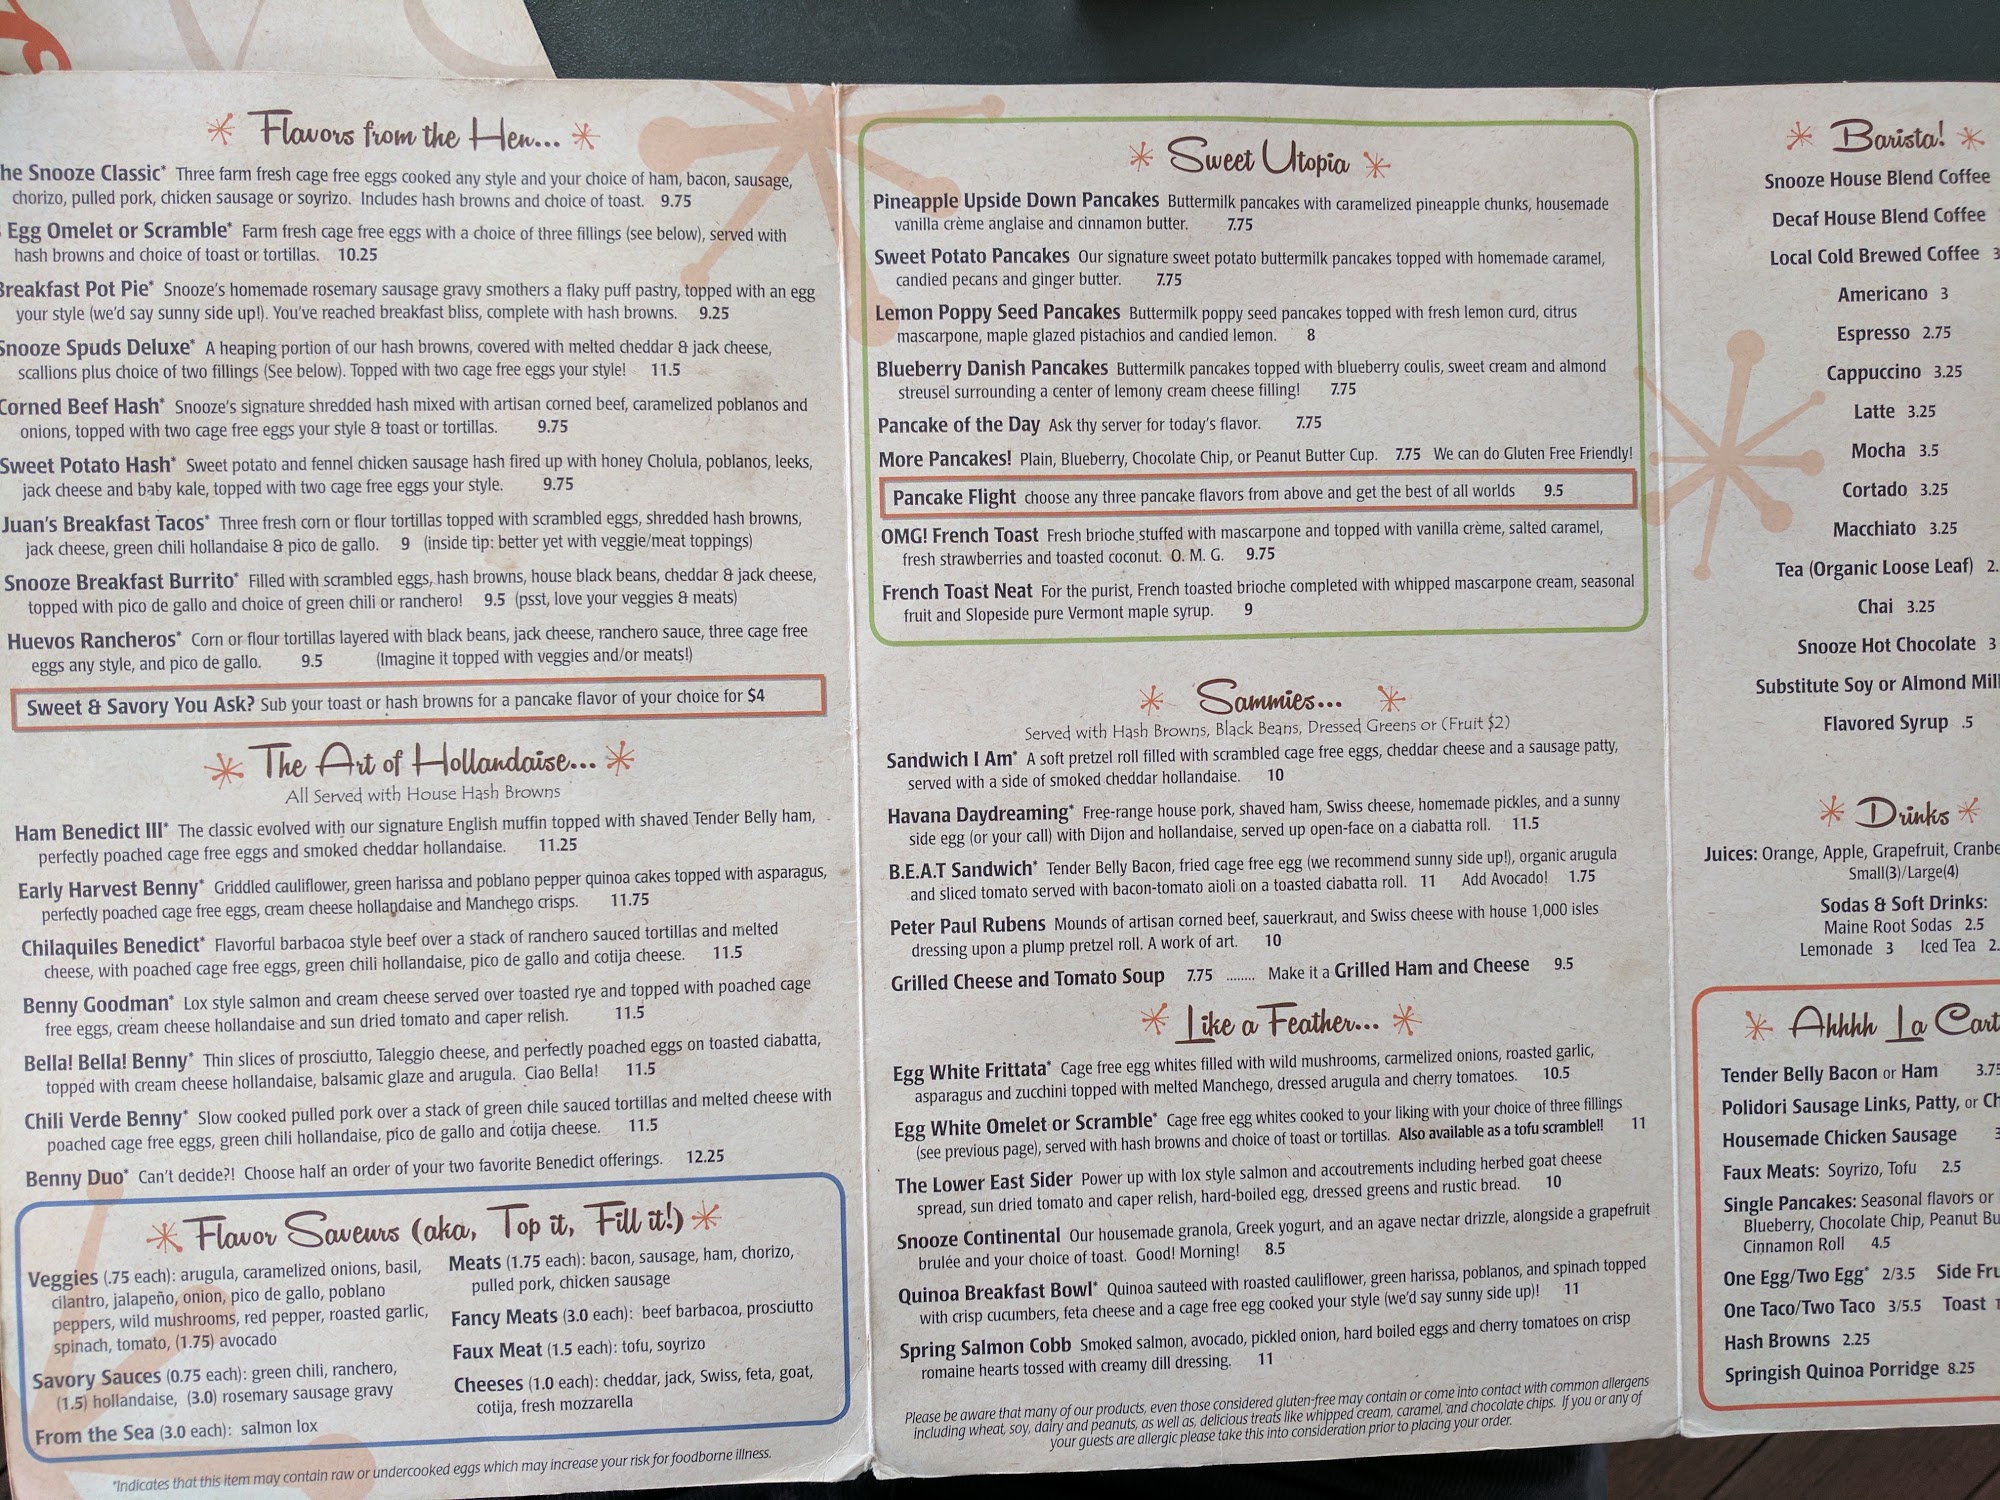 Flavors from the Hen...
he Snooze Classic* Three farm fresh cage free eggs cooked any style and your choice of ham, bacon, sausage,
chorizo, pulled pork, chicken sausage or soyrizo. Includes hash browns and choice of toast. 9.75
Egg Omelet or Scramble* Farm fresh cage free eggs with a choice of three fillings (see below), served with
hash browns and choice of toast or tortillas. 10.25
Breakfast Pot Pie* Snooze's homemade rosemary sausage gravy smothers a flaky puff pastry, topped with an egg
your style (we'd say sunny side up!). You've reached breakfast bliss, complete with hash browns. 9.25
Snooze Spuds Deluxe* A heaping portion of our hash browns, covered with melted cheddar & jack cheese,
scallions plus choice of two fillings (See below). Topped with two cage free eggs your style! 11.5
Corned Beef Hash* Snooze's signature shredded hash mixed with artisan corned beef, caramelized poblanos and
onions, topped with two cage free eggs your style & toast or tortillas. 9.75
Sweet Potato Hash* Sweet potato and fennel chicken sausage hash fired up with honey Cholula, poblanos, leeks,
jack cheese and baby kale, topped with two cage free eggs your style. 9.75
Juan's Breakfast Tacos* Three fresh corn or flour tortillas topped with scrambled eggs, shredded hash browns,
jack cheese, green chili hollandaise & pico de gallo. 9 (inside tip: better yet with veggie/meat toppings)
Snooze Breakfast Burrito* Filled with scrambled eggs, hash browns, house black beans, cheddar & jack cheese,
topped with pico de gallo and choice of green chili or ranchero! 9.5 (psst, love your veggies & meats)
Huevos Rancheros* Corn or flour tortillas layered with black beans, jack cheese, ranchero sauce, three cage free
eggs any style, and pico de gallo. 9.5 (Imagine it topped with veggies and/or meats!)
Sweet & Savory You Ask? Sub your toast or hash browns for a pancake flavor of your choice for $4
The Art of Hollandaise...
All Served with House Hash Browns
Ham Benedict III* The classic evolved with our signature English muffin topped with shaved Tender Belly ham,
perfectly poached cage free eggs and smoked cheddar hollandaise. 11.25
Early Harvest Benny* Griddled cauliflower, green harissa and poblano pepper quinoa cakes topped with asparagus,
perfectly poached cage free eggs, cream cheese hollandaise and Manchego crisps. 11.75
Chilaquiles Benedict* Flavorful barbacoa style beef over a stack of ranchero sauced tortillas and melted
cheese, with poached cage free eggs, green chili hollandaise, pico de gallo and cotija cheese. 11.5
Benny Goodman* Lox style salmon and cream cheese served over toasted rye and topped with poached cage
free eggs, cream cheese hollandaise and sun dried tomato and caper relish. 11.5
Bella! Bella! Benny* Thin slices of prosciutto, Taleggio cheese, and perfectly poached eggs on toasted ciabatta,
topped with cream cheese hollandaise, balsamic glaze and arugula. Ciao Bella! 11.5
Chili Verde Benny* Slow cooked pulled pork over a stack of green chile sauced tortillas and melted cheese with
poached cage free eggs, green chili hollandaise, pico de gallo and cotija cheese. 11.5
Benny Duo* Can't decide?! Choose half an order of your two favorite Benedict offerings. 12.25
Flavor Saveurs (aka, Top it, Fill it!)
Veggies (.75 each): arugula, caramelized onions, basil,
cilantro, jalapeño, onion, pico de gallo, poblano
peppers, wild mushrooms, red pepper, roasted garlic,
spinach, tomato, (1.75) avocado
Savory Sauces (0.75 each): green chili, ranchero,
(1.5) hollandaise, (3.0) rosemary sausage gravy
From the Sea (3.0 each): salmon lox
Meats (1.75 each): bacon, sausage, ham, chorizo,
pulled pork, chicken sausage
Fancy Meats (3.0 each): beef barbacoa, prosciutto
Faux Meat (1.5 each): tofu, soyrizo
Cheeses (1.0 each): cheddar, jack, Swiss, feta, goat,
cotija, fresh mozzarella
*Indicates that this item may contain raw or undercooked eggs which may increase your risk for foodborne illness.
Sweet Utopia
Pineapple Upside Down Pancakes Buttermilk pancakes with caramelized pineapple chunks, housemade
vanilla crème anglaise and cinnamon butter. 7.75
Sweet Potato Pancakes Our signature sweet potato buttermilk pancakes topped with homemade caramel,
candied pecans and ginger butter. 7.75
Lemon Poppy Seed Pancakes Buttermilk poppy seed pancakes topped with fresh lemon curd, citrus
mascarpone, maple glazed pistachios and candied lemon. 8
Blueberry Danish Pancakes Buttermilk pancakes topped with blueberry coulis, sweet cream and almond
streusel surrounding a center of lemony cream cheese filling! 7.75
Pancake of the Day Ask thy server for today's flavor. 7.75
More Pancakes! Plain, Blueberry, Chocolate Chip, or Peanut Butter Cup. 7.75 We can do Gluten Free Friendly!
Pancake Flight choose any three pancake flavors from above and get the best of all worlds 9.5
OMG! French Toast Fresh brioche stuffed with mascarpone and topped with vanilla crème, salted caramel,
fresh strawberries and toasted coconut. O. M. G. 9.75
French Toast Neat For the purist, French toasted brioche completed with whipped mascarpone cream, seasonal
fruit and Slopeside pure Vermont maple syrup. 9
Sammies...
Served with Hash Browns, Black Beans, Dressed Greens or (Fruit $2)
Sandwich I Am* A soft pretzel roll filled with scrambled cage free eggs, cheddar cheese and a sausage patty,
served with a side of smoked cheddar hollandaise. 10
Havana Daydreaming* Free-range house pork, shaved ham, Swiss cheese, homemade pickles, and a sunny
side egg (or your call) with Dijon and hollandaise, served up open-face on a ciabatta roll. 11.5
B.E.A.T Sandwich* Tender Belly Bacon, fried cage free egg (we recommend sunny side up!), organic arugula
and sliced tomato served with bacon-tomato aioli on a toasted ciabatta roll. 11 Add Avocado! 1.75
Peter Paul Rubens Mounds of artisan corned beef, sauerkraut, and Swiss cheese with house 1,000 isles
dressing upon a plump pretzel roll. A work of art. 10
Grilled Cheese and Tomato Soup 7.75 ........ Make it a Grilled Ham and Cheese 9.5
Like a Feather...
Egg White Frittata* Cage free egg whites filled with wild mushrooms, carmelized onions, roasted garlic,
asparagus and zucchini topped with melted Manchego, dressed arugula and cherry tomatoes. 10.5
Egg White Omelet or Scramble* Cage free egg whites cooked to your liking with your choice of three fillings
(see previous page), served with hash browns and choice of toast or tortillas. Also available as a tofu scramble!! 11
The Lower East Sider Power up with lox style salmon and accoutrements including herbed goat cheese
spread, sun dried tomato and caper relish, hard-boiled egg, dressed greens and rustic bread. 10
Snooze Continental Our housemade granola, Greek yogurt, and an agave nectar drizzle, alongside a grapefruit
brulée and your choice of toast. Good! Morning! 8.5
Quinoa Breakfast Bowl* Quinoa sauteed with roasted cauliflower, green harissa, poblanos, and spinach topped
with crisp cucumbers, feta cheese and a cage free egg cooked your style (we'd say sunny side up)! 11
Spring Salmon Cobb Smoked salmon, avocado, pickled onion, hard boiled eggs and cherry tomatoes on crisp
romaine hearts tossed with creamy dill dressing. 11
Please be aware that many of our products, even those considered gluten-free may contain or come into contact with common allergens
including wheat, soy, dairy and peanuts, as well as, delicious treats like whipped cream, caramel, and chocolate chips. If you or any of
your guests are allergic please take this into consideration prior to placing your order.
Barista!
Snooze House Blend Coffee
Decaf House Blend Coffee
Local Cold Brewed Coffee 3
Americano 3
Espresso 2.75
Cappuccino 3.25
Latte 3.25
Mocha 3.5
Cortado 3.25
Macchiato 3.25
Tea (Organic Loose Leaf) 2.
Chai 3.25
Snooze Hot Chocolate 3
Substitute Soy or Almond Mil
Flavored Syrup .5
Drinks
Juices: Orange, Apple, Grapefruit, Cranbe
Small(3)/Large(4)
Sodas & Soft Drinks:
Maine Root Sodas 2.5
Lemonade 3 Iced Tea 2.
Ahhhh La Cart
Tender Belly Bacon or Ham 3.75
Polidori Sausage Links, Patty, or Ch
Housemade Chicken Sausage 3
Faux Meats: Soyrizo, Tofu 2.5
Single Pancakes: Seasonal flavors or
Blueberry, Chocolate Chip, Peanut Bu
Cinnamon Roll 4.5
One Egg/Two Egg* 2/3.5 Side Fru
One Taco/Two Taco 3/5.5 Toast 1
Hash Browns 2.25
Springish Quinoa Porridge 8.25